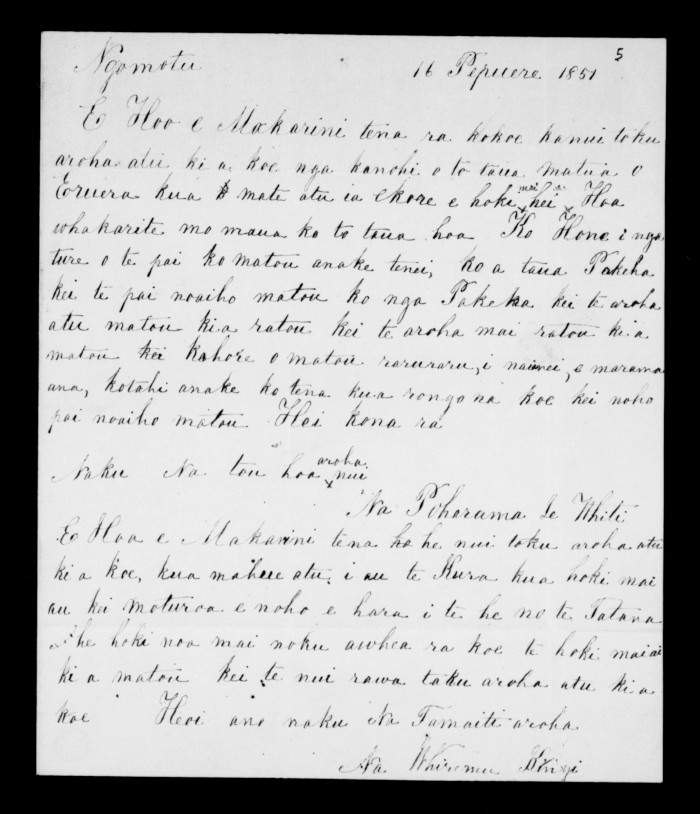 5
Ngamotu 16 Pepuere 1851
E Hoa e Makarini tena ra kokoe kanui toku
aroha atu ki a koe nga kanohi o to taua matua o
Eruera kua mate atu ia ekore e hoki mai hei Hoa
whakarite mo maua ko to taua hoa Ko Hone i nga
ture o te pai ko matou anake tenei, ko a taua Pakeha
kei te pai noaiho matou ko nga Pakeha kei te aroha
atu matou ki a ratou kei te aroha mai ratou ki a
matou kei kahore o matou raruraru, i naianei, e marama
ana, kotahi anake ko tena kua rongo na koe kei noho
pai noaiho matou Hei kona ra
Naku Na tou hoa aroha nui
Na Poharama Te Whiti
E Hoa e Makarini tena ko he nui toku aroha atu
ki a koe, kua mahue atu i au te Kura kua hoki mai
au kei moturoa e noho e hara i te he no te Tatana
he hoki noa mai noku awhea ra koe te hoki mai ai
ki a matou kei te nui rawa taku aroha atu ki a
koe Heoi ano naku Na Tamaiti aroha
Na Whiremu Kingi